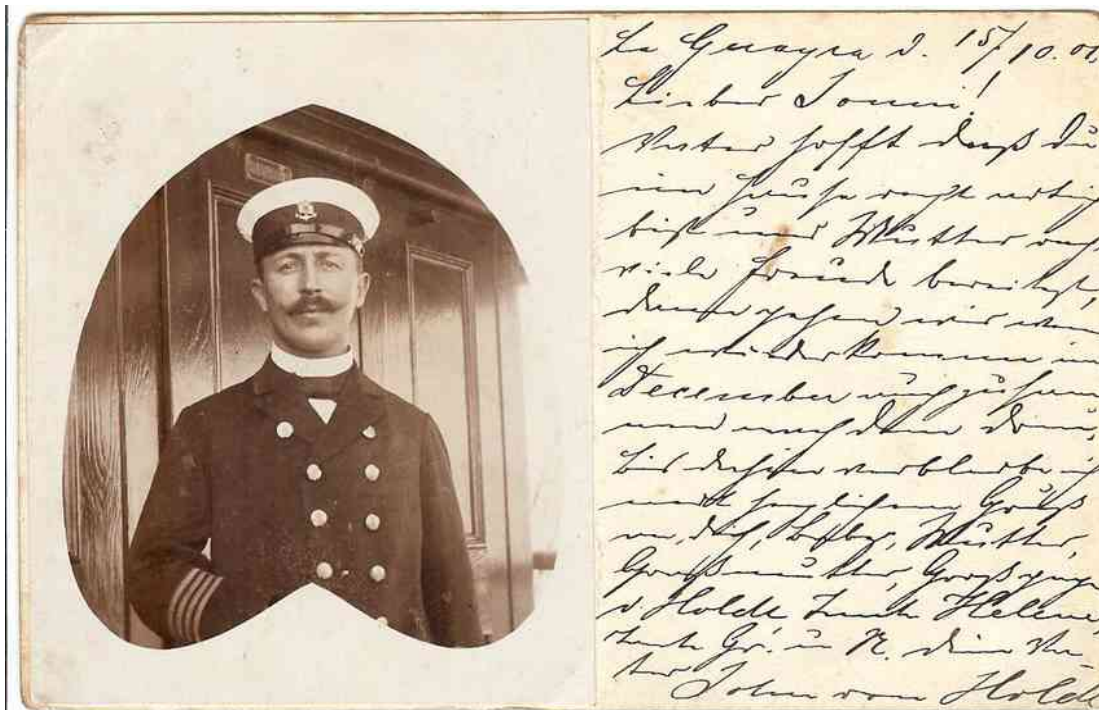 La Guayra d. 15/10. 01.
Lieber Jonni!
Vater hofft daß Du
im Hause recht artig
bist und Mutter recht
viele Freude bereitest,
dann gehen wir wenn
ich wiederkomme im
December
und nach dem Dom,
bis dahin verbleibe ich
mit herzlichem Gruß
an Dich, Baby, Mutter,
Großmutter,
v. Holdt Tante Helene,
Tante Gr. u R. dein Va-
ter John von Holdt